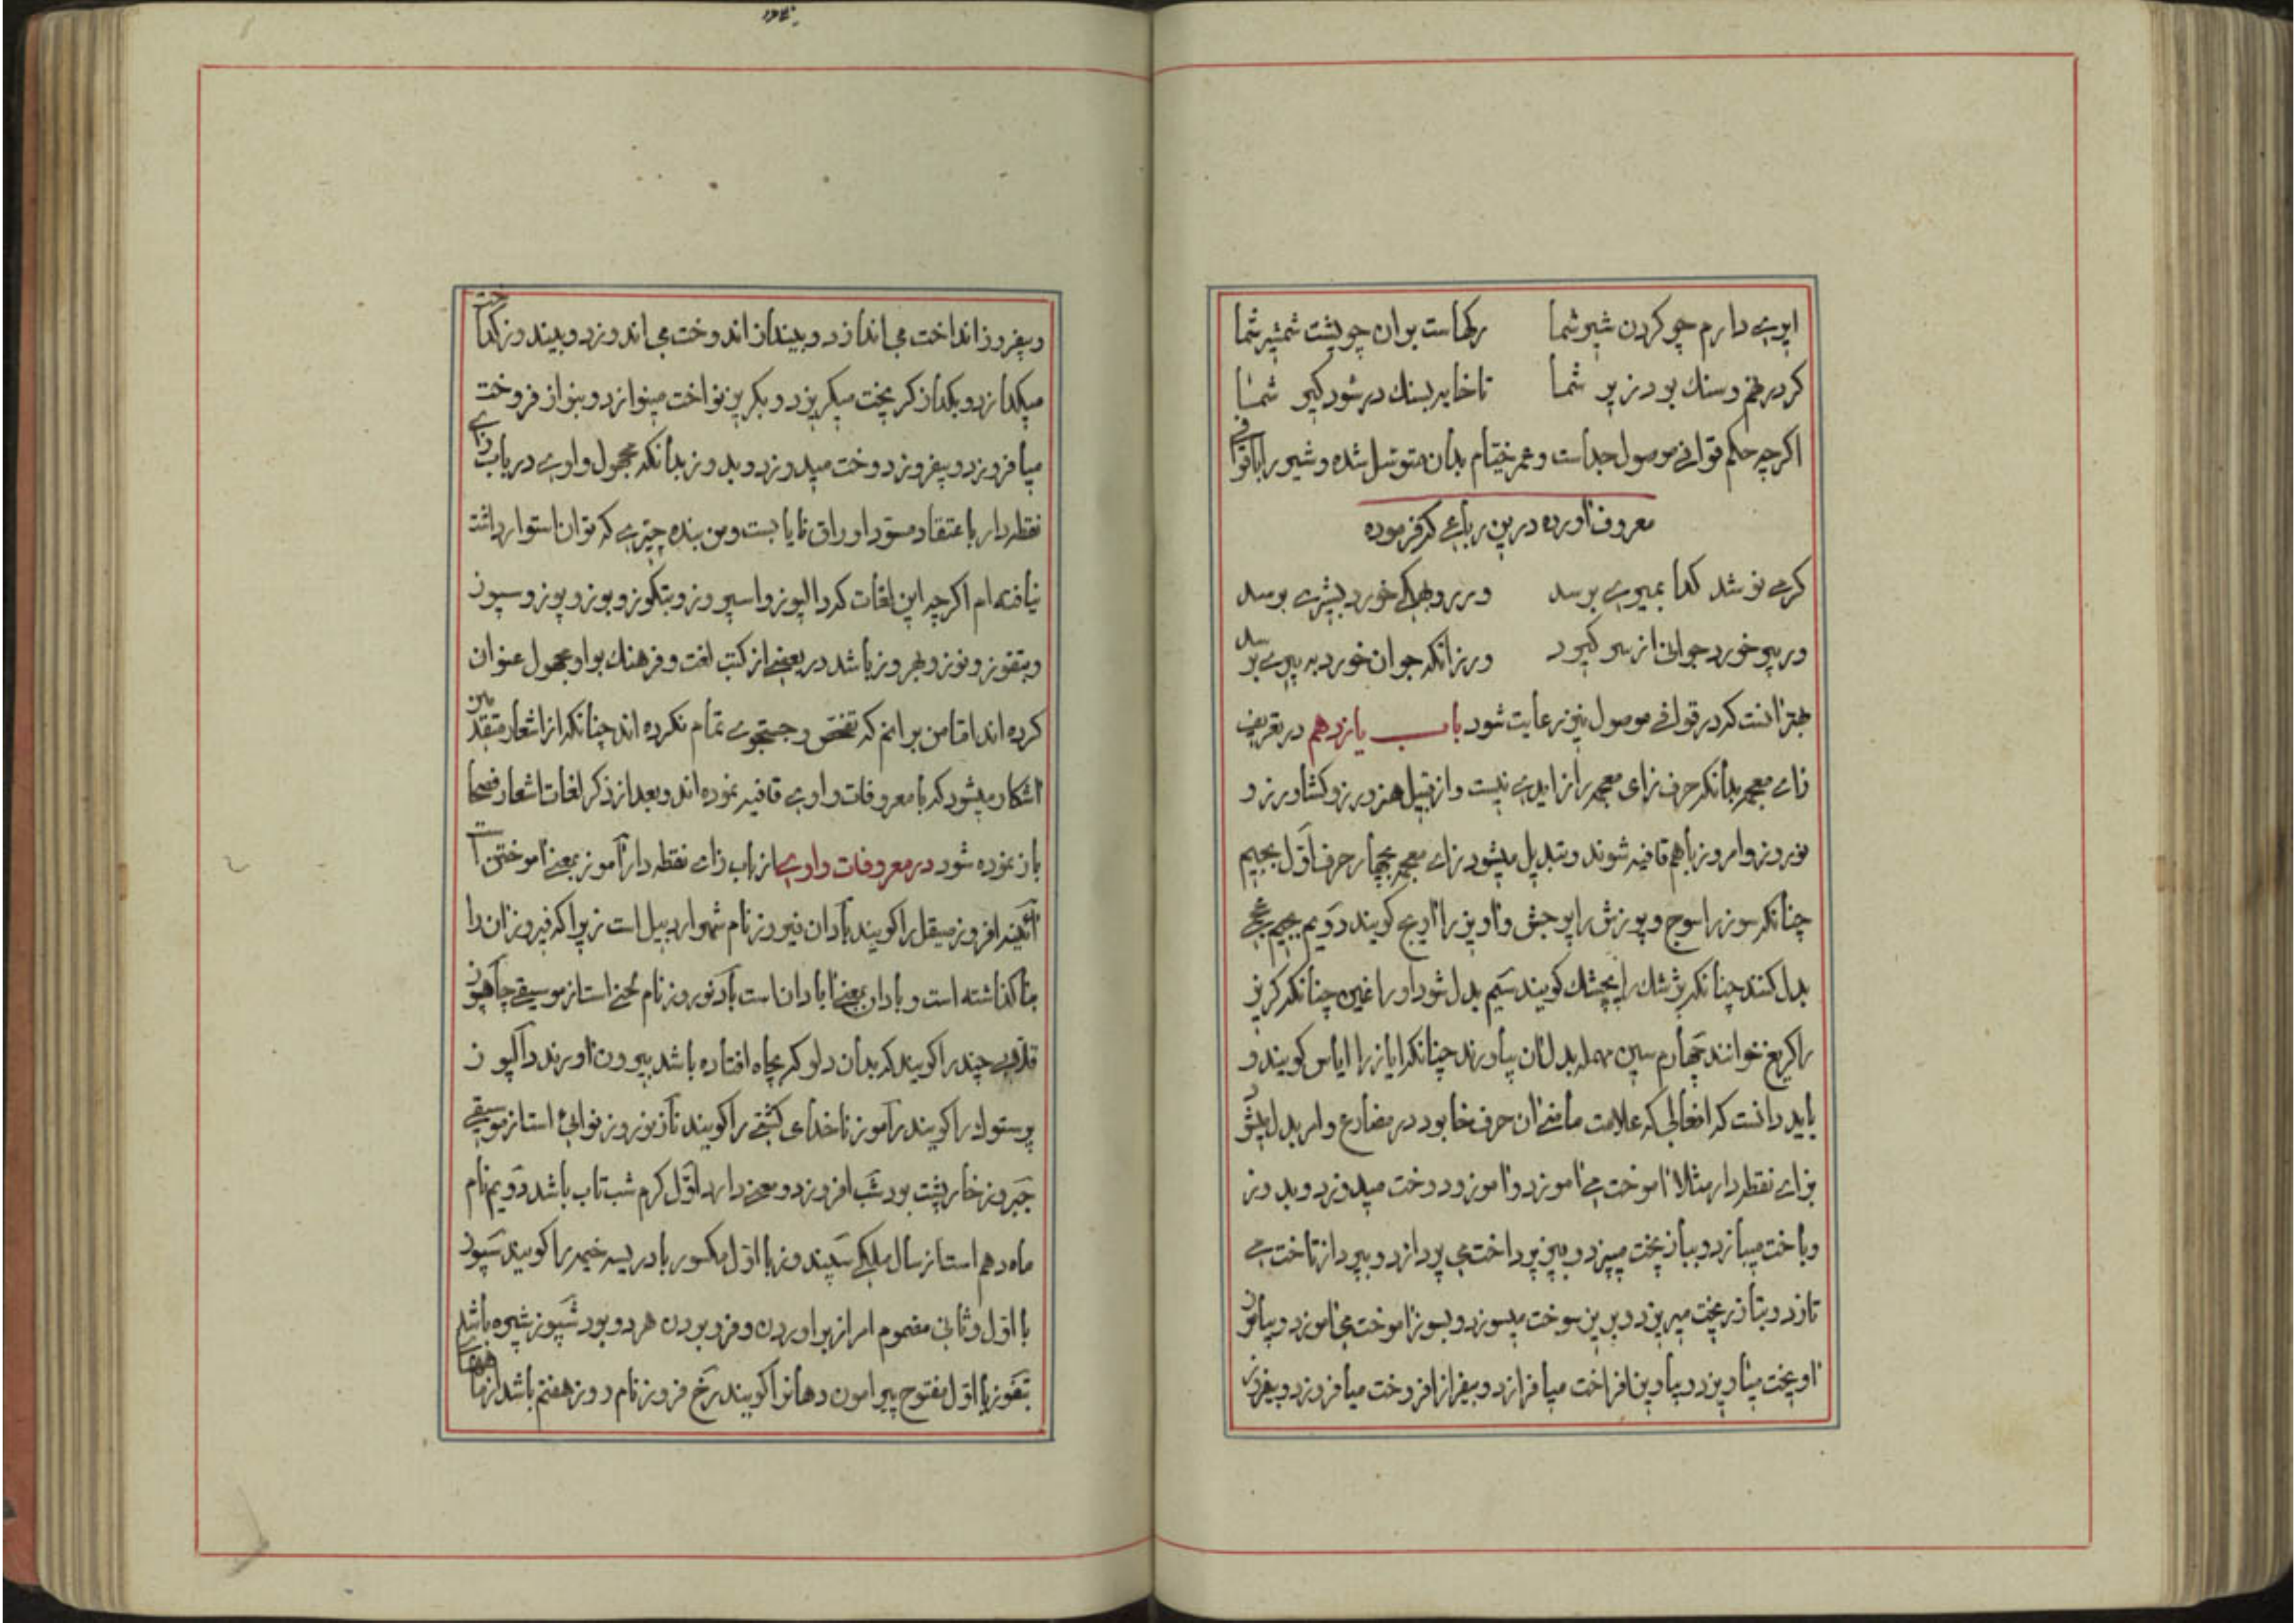 ایری دارم چو کردن شیر شما رکهاست بران چو پشت شمشیر شما
کر در خم و سنك بود زیر شما تا خایه بسنك در شود کیر شما
اکرچه حکم قوافی موصول جداست و عمر خیام بدان متوسل شده و شیر را با قوافی
معروف آورده درین رباعی که فرموده
کر می نوشد کدا بمیری برسد ور روبهکی خورد بشیری برسد
ور پیر خورد جوانی از سر کیرد ور زانکه جوان خورد به پیری برسد
بهتر آنست که در قوافی موصول نیز رعایت شود باب یازدهم در تعریف
زای معجمه بدانکه حرف زای معجمه را زایدی نیست و از قبیل هنرورز و کشاورز و
نوروز و امروز با هم قافیه شوند و تبدیل میشود زای معجمه بچهار حرف اول بجیم
چنانکه سوز را سوج و پوزش را پوجش و آویز را آویج کویند دویم بجیم عجمی
بدل کنند چنانکه پزشك را بچشك کویند سیم بدل شود او را غین چنانکه کریز
را کریغ خوانند چهارم سین مهمله بدل آن بیاورند چنانکه ایاز را ایاس کویند و
باید دانست که افعالی که علامت ماضی آن حرف خا بود در مضارع و امر بدل میشود
بزای نقطه دار مثلا آموخت می آموزد و آموز و دوخت میدوزد و بدوز
و باخت میبازد و بباز پخت میپزد و بپز پرداخت می پردازد و بپرداز تاخت می
تازد و بتاز ریخت میریزد و بریز سوخت میسوزد و بسوز آموخت می آموزد و بیاموز
آویخت میاویزد و بیاویز افراخت میافرازد و بیفراز افروخت میافروزد و بیفروز
و بیفروز انداخت می اندازد و بینداز اندوخت می اندوزد و بیندوز کداخت
میکدازد و بکداز کریخت میکریزد و بکریز نواخت مینوازد و بنواز فروخت
میافروزد و بیفروزد دوخت میدوزد و بدوز بدانکه مجهول واوی در باب زای
نقطه دار باعتقاد مسود اوراق نایابست و من بنده چیزی که توان استوار داشت
نیافته ام اکرچه این لغات که دالپوز و اسپروز و بتکوز و بوز و پوز و سپوز
و بتفوز و نوز و بهروز باشد در بعضی از کتب لغت و فرهنك بواو مجهول عنوان
کرده اند اما من برانم که تفحص و جستجوی تمام نکرده اند چنانکه از اشعار متقدمین
آشکار میشود که با معروفات واوی قافیه نموده اند و بعد از ذکر لغات اشعار فصحا
باز نموده شود در معروفات واوی از باب زای نقطه دار آموز بمعنی آموختن است
آئینه افروز صیقل را کویند بادان فیروز نام شهر اردبیل است زیرا که فیروز آن را
بنا کذاشته است و بادان بمعنی آبادان است باد نوروز نام لحنی است از موسیقی چاهیوز
قلابی چند را کویند که بدان دلو که بچاه افتاده باشد بیرون آورند دالپوز
پرستوك را کویند رآموز ناخدای کشتی را کویند ناز نوروز نوائی است از موسیقی
جبروز خارپشت بود شب افروز دو معنی دارد اول کرم شب تاب باشد دویم نام
ماه دهم است از سال ملکی سپندوز با اول مکسور بادریسه خیمه را کویند سپوز
با اول و ثانی مضموم امر از براوردن و فرو بردن هر دو بود شپوز شپره باشد
بتفوز با اول مفتوح پیرامون دهانرا کویند رخ فروز نام روز هفتم باشد از ماههای